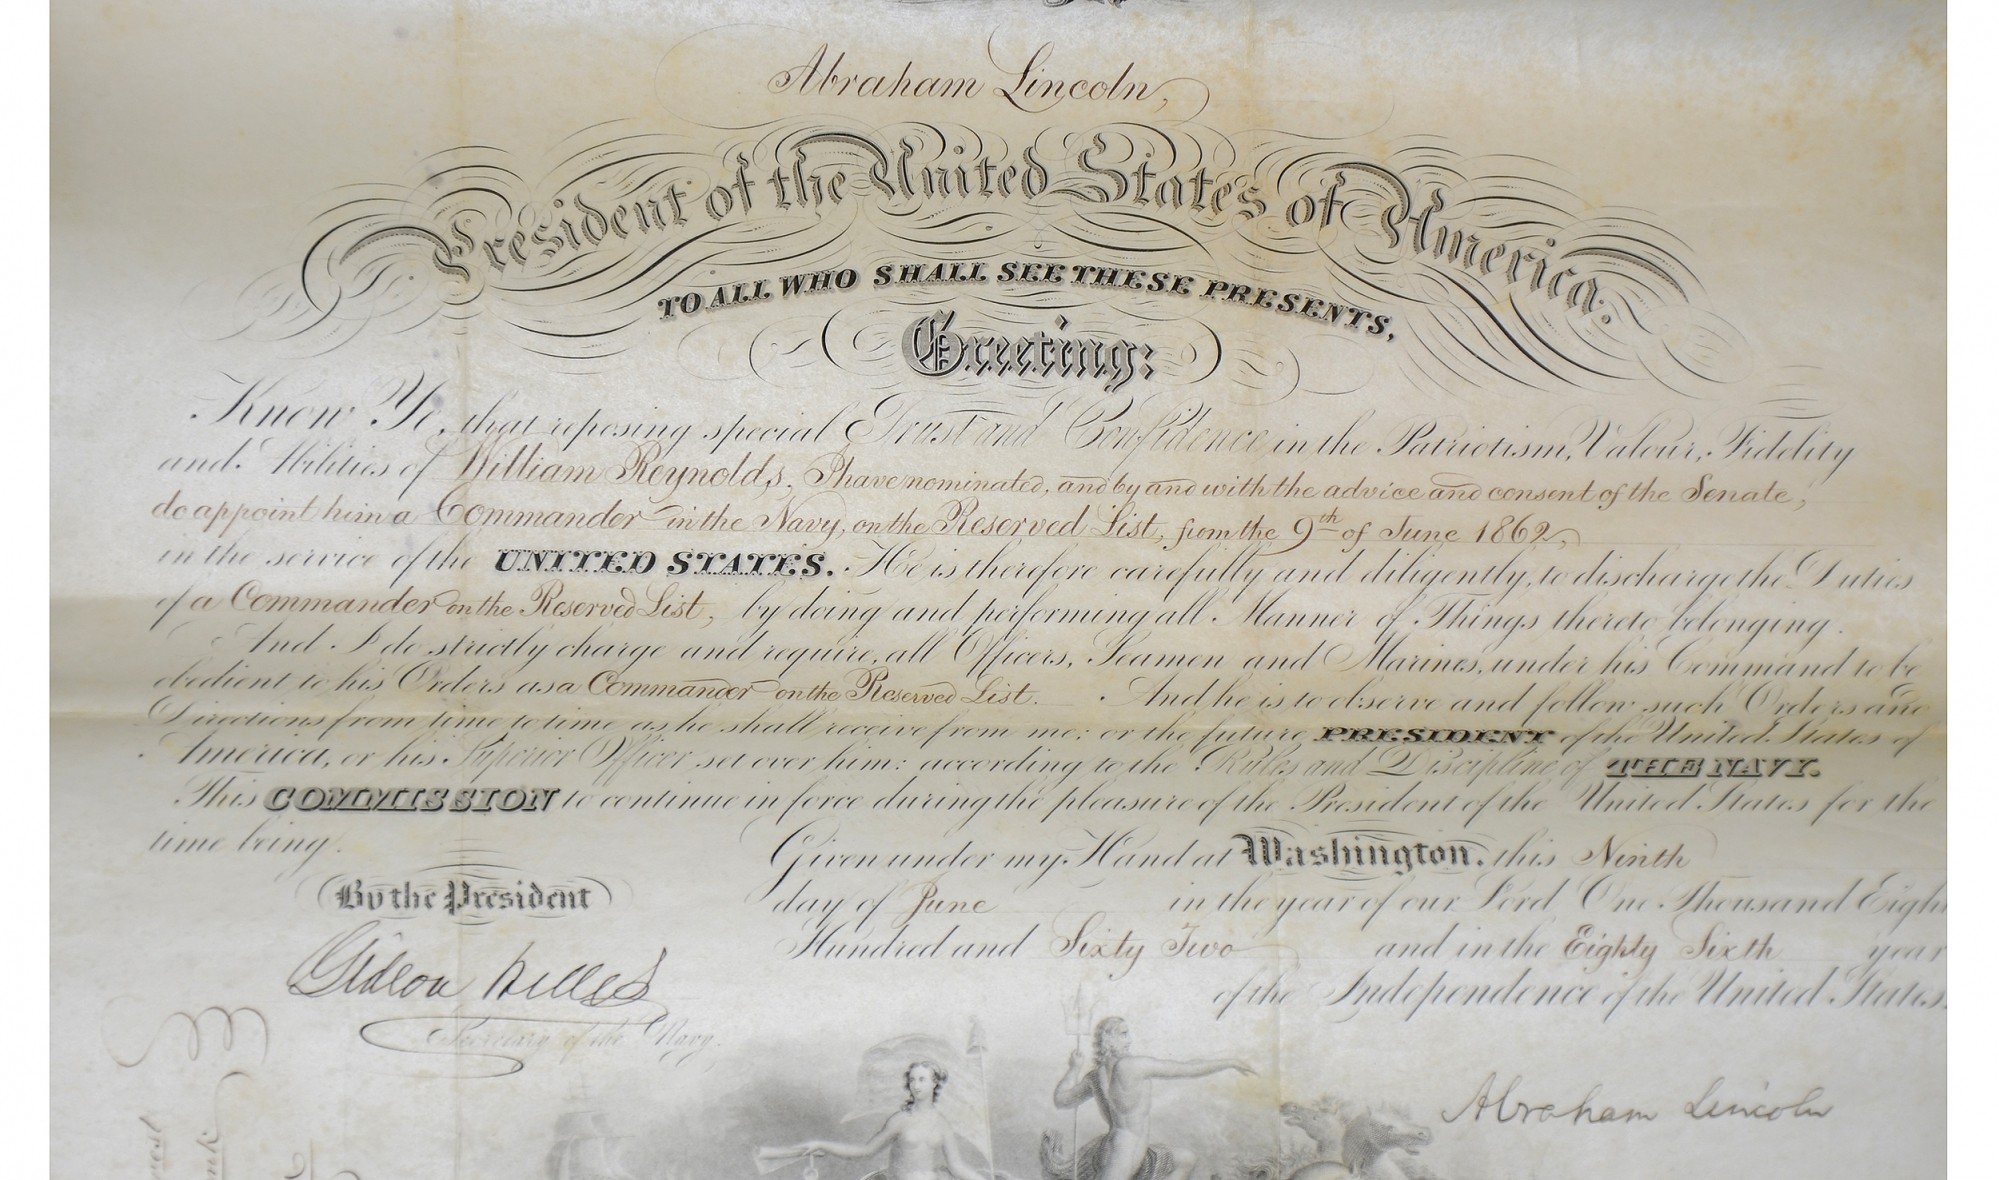 Abraham Lincoln,
President of the United States of America.
TO ALL WHO SHALL SEE THESE PRESENTS,
Greeting:
Know Ye, that reposing special Trust and Confidence in the Patriotism, Valour, Fidelity
and Abilities of William Reynolds, I have nominated, and by and with the advice and consent of the Senate,
do appoint him a Commander in the Navy, on the Reserved List, from the 9th of June 1862,
in the service of the UNITED STATES. He is therefore carefully and diligently, to discharge the Duties
of a Commander on the Reserved List, by doing and performing all Manner of Things thereto belonging.
And I do strictly charge and require, all Officers, Seamen and Marines, under his Command to be
obedient to his Orders as a Commander on the Reserved List. And he is to observe and follow such Orders and
Directions from time to time as he shall receive from me: or the future PRESIDENT of the United States of
America, or his Superior Officer set over him: according to the Rules and Discipline of THE NAVY.
This COMMISSION to continue in force during the pleasure of the President of the United States for the
time being.
Given under my Hand at Washington. this Ninth
day of June in the year of our Lord One Thousand Eigh
Hundred and Sixty Two and in the Eighty Sixth year
of the Independence of the United States.
By the President
Gideon Welles
Secretary of the Navy.
Abraham Lincoln